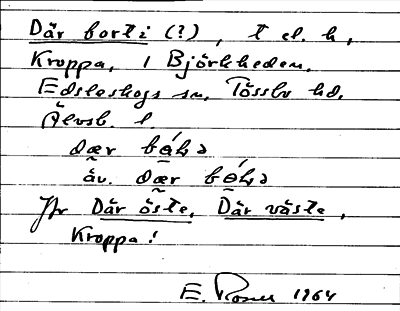 Där borti (?), t el. h,
Kroppa, 1 Björkheden,
Edsleskogs sn, Tössbo hd,
Älvsb. l.
dær
äv. dær
Jfr Där öste, Där väste,
Kroppa!
E. 1964